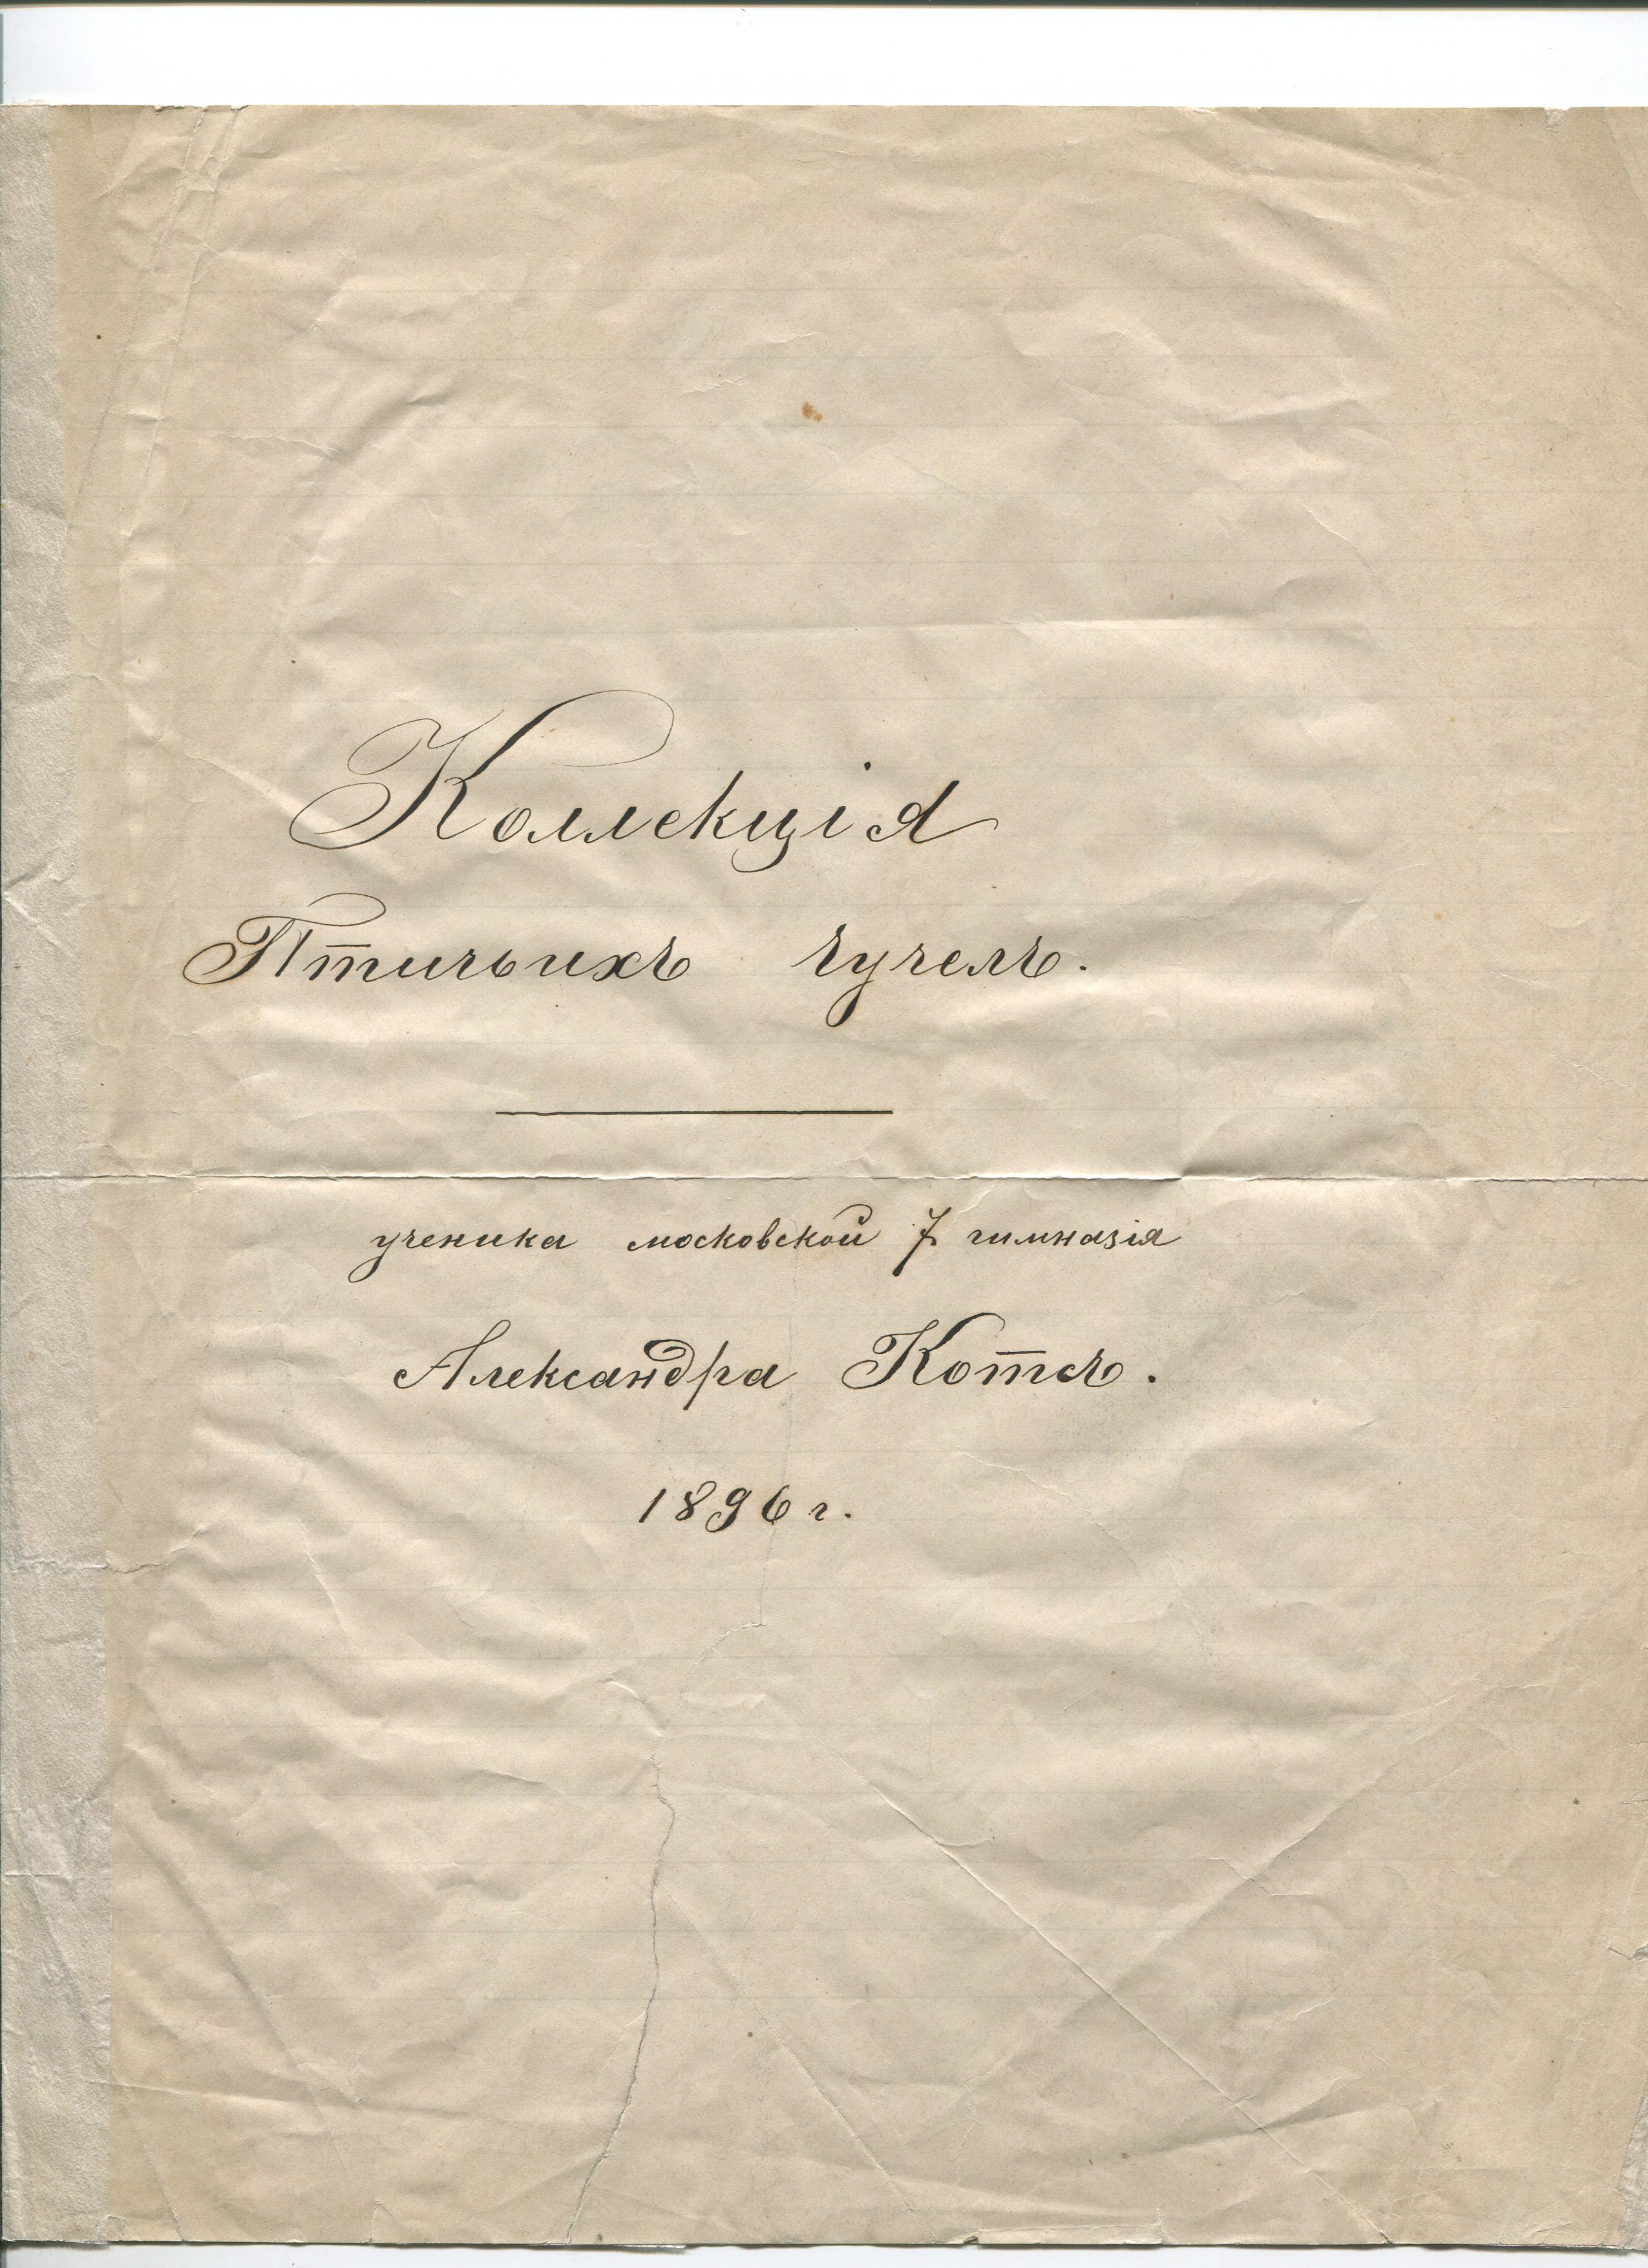 Коллекція
Птичьихъ чучелъ.
ученика московской 7 гимназія
Александра Котсъ.
1896 г.